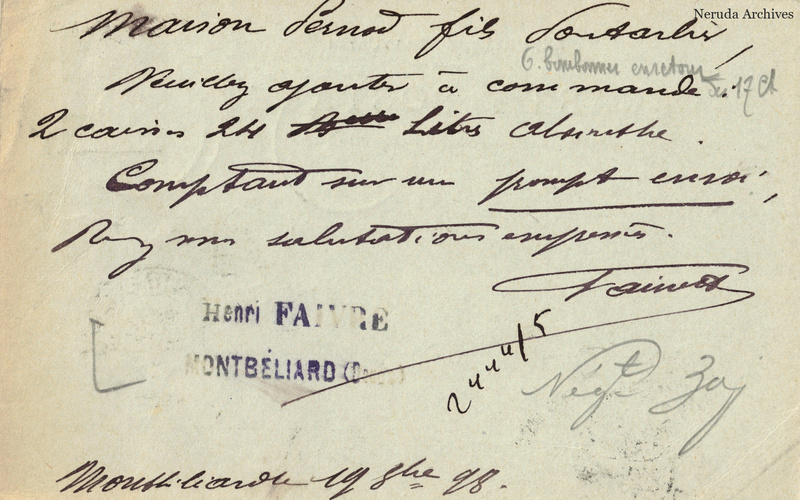 Neruda Archives
Maison Pernod fils Pontarlier,
6. bonbonnes en retour
du 17 Ct
Veuillez ajouter à commande :
2 caisses 24 Litres Absinthe.
Comptant sur un prompt envoi,
Recevez mes salutations empressées.
Henri FAIVRE
MONTBÉLIARD (Doubs)
24445
Négt
Montbéliard le 19 8bre 98.